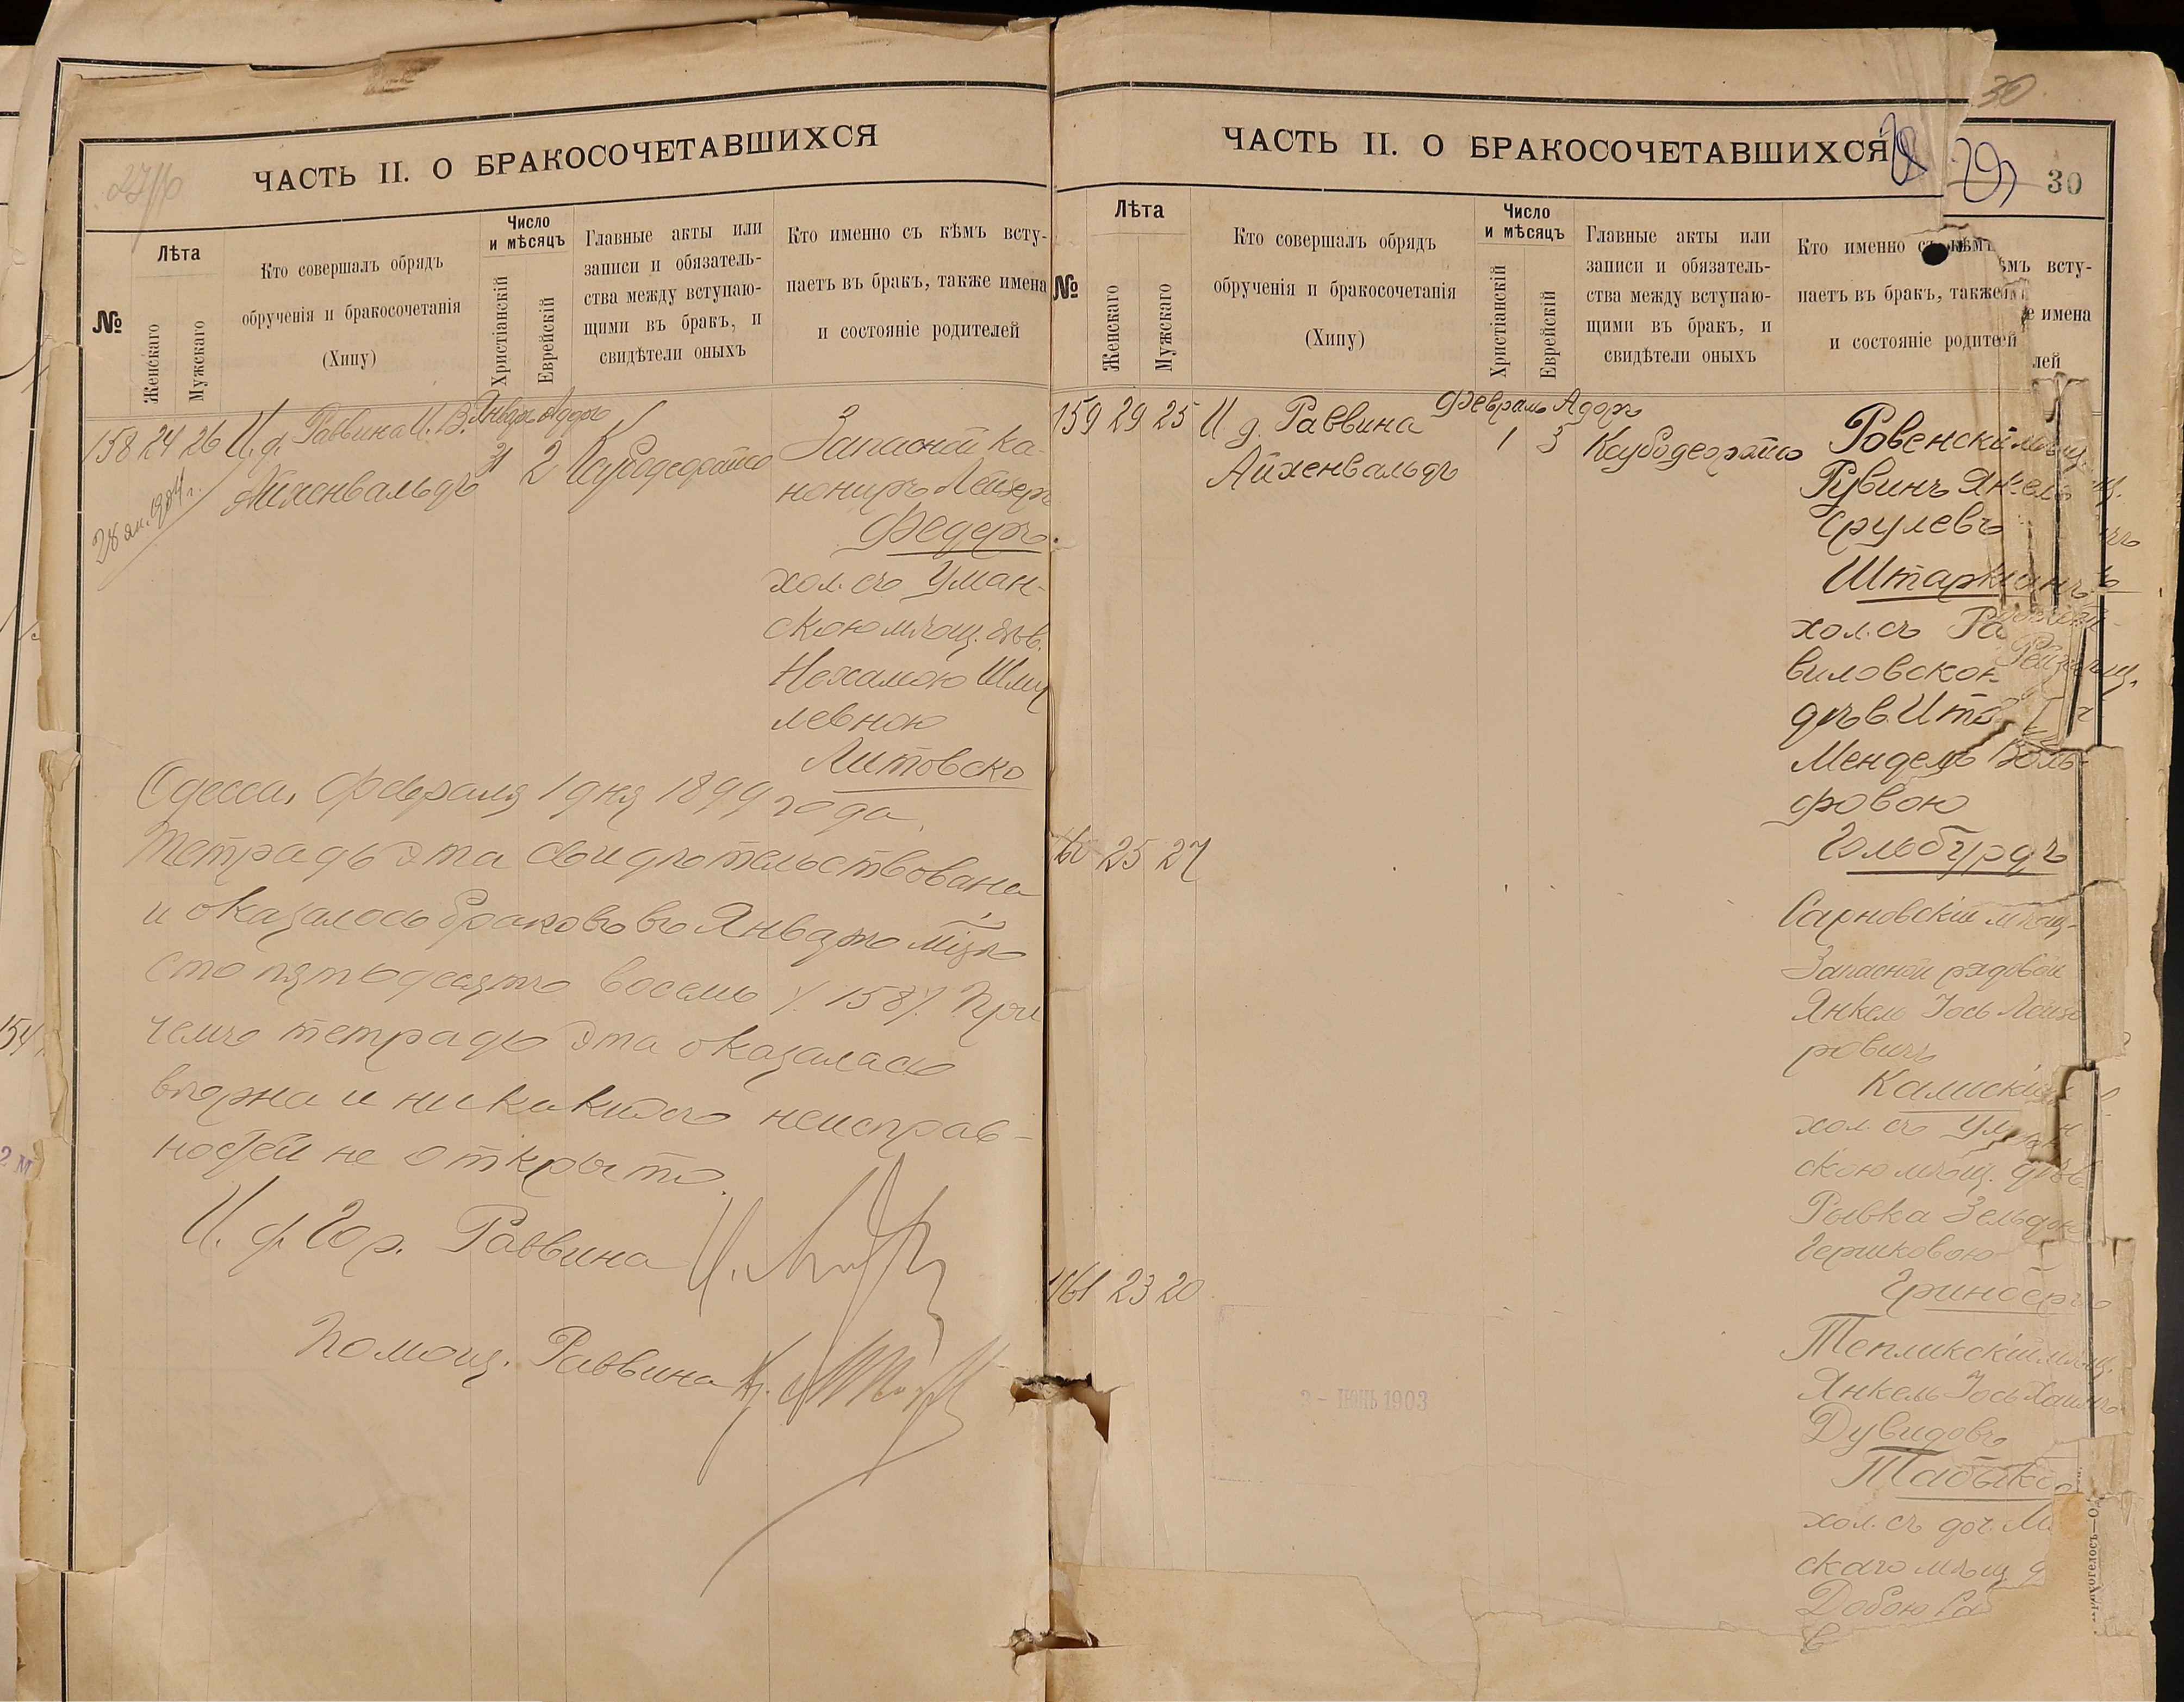 ЧАСТЬ II. О БРАКОСОЧЕТАВШИХСЯ
№
Лѣта
Женскаго
Мужскаго
Кто совершалъ обрядъ
обрученія и бракосочетанія
(Хипу)
Число
и мѣсяцъ
Христіанскій
Еврейскій
Главные акты или
записи и обязатель-
ства между вступаю-
щими въ бракъ, и
свидѣтели оныхъ
Кто именно съ кѣмъ всту-
паетъ въ брак, также имена
и состояніе родителей
158 24 26 И. д. Раввина И. В. Январь Адаръ
Айхенвальдъ 31 2
28 ян. 1904 г.
Запасной ка-
нониръ Лейзеръ
Федеръ
хол. съ Уман-
скою мѣщ. дѣв.
Нехамою Шму
левною
Литовско
Одесса, февраля 1 дня 1899 года.
Тетрадь эта свидѣтельствована
и оказалось браковъ въ Январѣ м-цѣ
сто пятьдесятъ восемь /158/. При
чемъ тетрадь эта оказалась
вѣрна и никакихъ неисправ-
ностей не открыто.
И. д. Гор. Раввина
Помощ. Раввина
30
ЧАСТЬ II. О БРАКОСОЧЕТАВШИХСЯ
29
30
№
Лѣта
Женскаго
Мужскаго
Кто совершалъ обрядъ
обрученія и бракосочетанія
(Хипу)
Число
и мѣсяцъ
Христіанскій
Еврейскій
Главные акты или
записи и обязатель-
ства между вступаю-
щими въ бракъ, и
свидѣтели оныхъ
Кто именно съ кѣмъ
ѣмъ всту-
паетъ въ брак, также
е имена
и состояніе родителей
159 29 25 И д. Раввина Февраль Адаръ
Айхенвальдъ 1 3
Ровенскій мѣщ.
Рувинъ Янкель
Срулевъ
Штаркманъ
хол. съ Ра
виловскою
дѣв. Ит
Мендель Воль-
фовою
Гольбурдъ
160 25 27
Сарновскій мѣщ.
Запасной рядовой
Янкель Іось Лейзе
ровичъ
Камискій
хол. съ Уман
скою мѣщ. дѣв.
Рывка Зельдою
Гершковою
Гринбергъ
161 23 20
Тепликскій мѣщ.
Янкель Іось Хаимъ
Дувидовъ
хол. съ доч. М
скаго мѣщ. д
Добою Са
в
2 - ІЮНЬ 1903